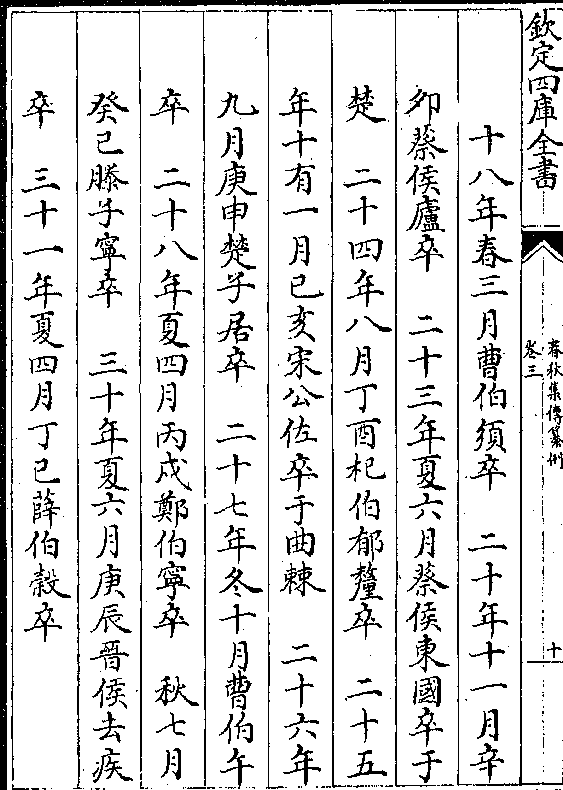 欽定四庫全書
春秋集傳纂例
卷三
十
十八年春三月曹伯須卒　二十年十一月辛
卯蔡侯廬卒　二十三年夏六月蔡侯東國卒于
楚　二十四年八月丁酉杞伯郁釐卒　二十五
年十有一月己亥宋公佐卒于曲棘　二十六年
九月庚申楚子居卒　二十七年冬十月曹伯午
卒　二十八年夏四月丙戌鄭伯寧卒　秋七月
癸已滕子寧卒　三十年夏六月庚辰晉侯去疾
卒　三十一年夏四月丁已薛伯縠卒